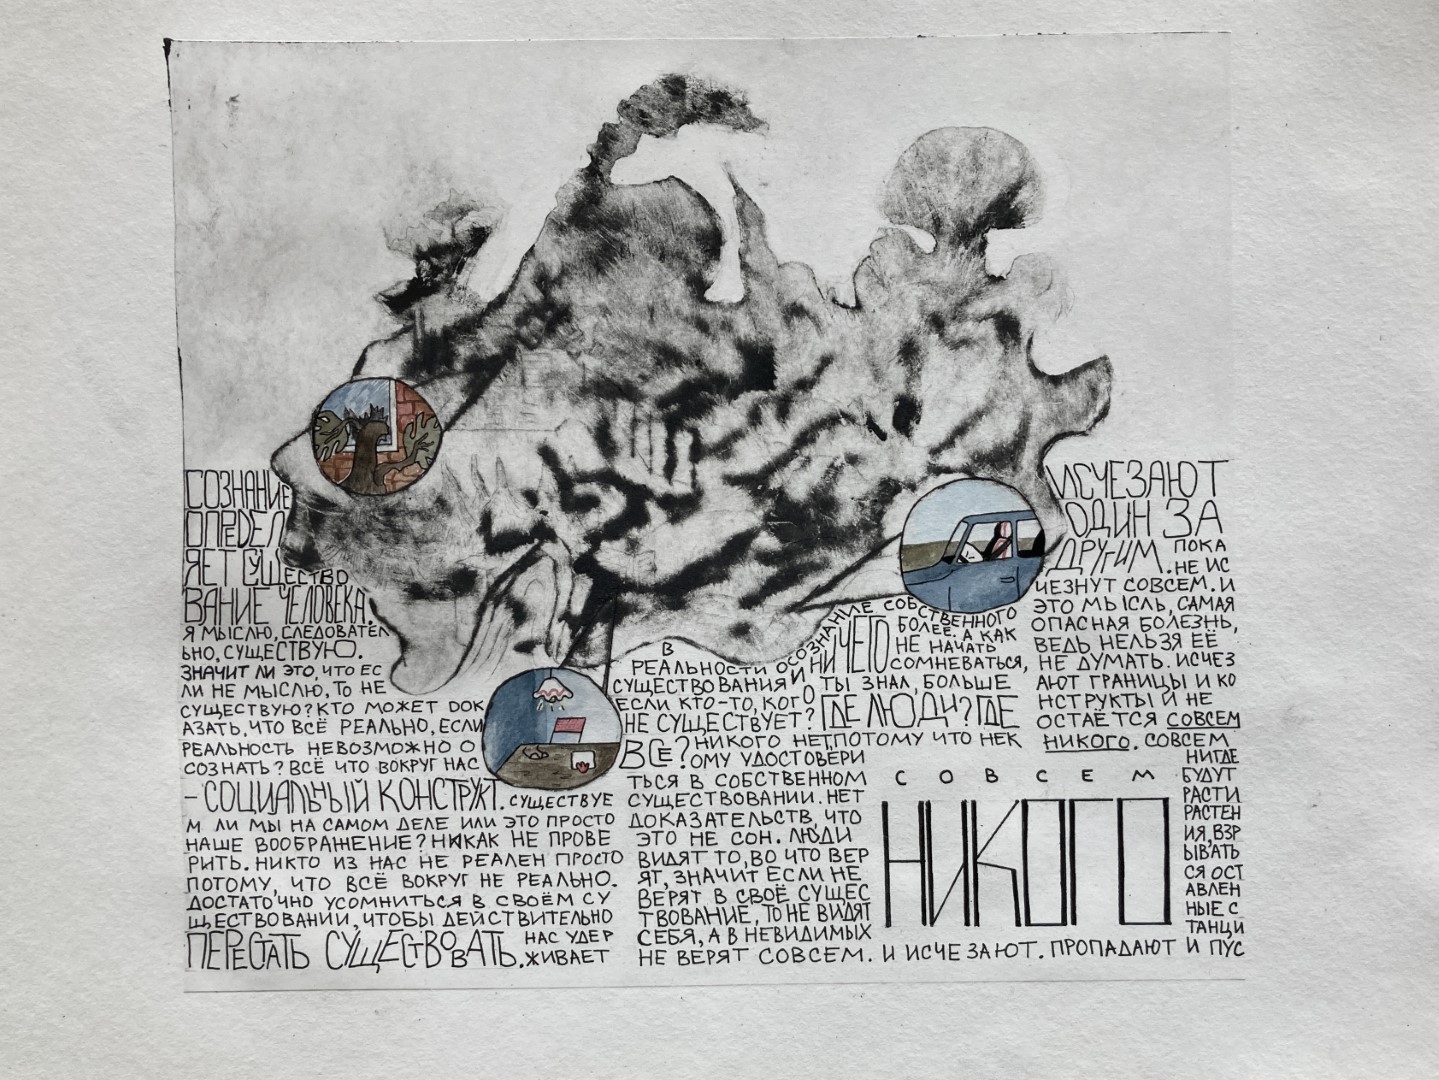 СОЗНАНИЕ
ОПРЕДЕЛ
ЯЕТ СУЩЕСТВО
ВАНИЕ ЧЕЛОВЕКА.
Я МЫСЛЮ, СЛЕДОВАТЕЛ
ЬНО, СУЩЕСТВУЮ.
ЗНАЧИТ ЛИ ЭТО, ЧТО ЕС
ЛИ НЕ МЫСЛЮ, ТО НЕ
СУЩЕСТВУЮ? КТО МОЖЕТ ДОК
АЗАТЬ, ЧТО ВСЁ РЕАЛЬНО, ЕСЛИ
РЕАЛЬНОСТЬ НЕВОЗМОЖНО О
СОЗНАТЬ? ВСЁ ЧТО ВОКРУГ НАС
– СОЦИАЛЬНЫЙ КОНСТРУКТ. СУЩЕСТВУЕ
М ЛИ МЫ НА САМОМ ДЕЛЕ ИЛИ ЭТО ПРОСТО
НАШЕ ВООБРАЖЕНИЕ? НИКАК НЕ ПРОВЕ
РИТЬ. НИКТО ИЗ НАС НЕ РЕАЛЕН ПРОСТО
ПОТОМУ, ЧТО ВСЁ ВОКРУГ НЕ РЕАЛЬНО.
ДОСТАТОЧНО УСОМНИТЬСЯ В СВОЁМ СУ
ЩЕСТВОВАНИИ, ЧТОБЫ ДЕЙСТВИТЕЛЬНО
ПЕРЕСТАТЬ СУЩЕСТВОВАТЬ. НАС УДЕР
ЖИВАЕТ
В
РЕАЛЬНОСТИ ОСОЗНАНИЕ СОБСТВЕННОГО
СУЩЕСТВОВАНИЯ И НИЧЕГО БОЛЕЕ. А КАК
НЕ НАЧАТЬ
СОМНЕВАТЬСЯ,
ЕСЛИ КТО-ТО, КОГО ТЫ ЗНАЛ, БОЛЬШЕ
НЕ СУЩЕСТВУЕТ? ГДЕ ЛЮДИ? ГДЕ
ВСЕ? НИКОГО НЕТ, ПОТОМУ ЧТО НЕК
ОМУ УДОСТОВЕРИ
ТЬСЯ В СОБСТВЕННОМ
СУЩЕСТВОВАНИИ. НЕТ
ДОКАЗАТЕЛЬСТВ, ЧТО
ЭТО НЕ СОН. ЛЮДИ
ВИДЯТ ТО, ВО ЧТО ВЕР
ЯТ, ЗНАЧИТ ЕСЛИ НЕ
ВЕРЯТ В СВОЁ СУЩЕС
ТВОВАНИЕ, ТО НЕ ВИДЯТ
СЕБЯ, А В НЕВИДИМЫХ
НЕ ВЕРЯТ СОВСЕМ. И ИСЧЕЗАЮТ. ПРОПАДАЮТ И ПУС
ИСЧЕЗАЮТ
ОДИН ЗА
ДРУГИМ. ПОКА
НЕ ИС
ЧЕЗНУТ СОВСЕМ. И
ЭТО МЫСЛЬ, САМАЯ
ОПАСНАЯ БОЛЕЗНЬ,
ВЕДЬ НЕЛЬЗЯ ЕЁ
НЕ ДУМАТЬ. ИСЧЕЗ
АЮТ ГРАНИЦЫ И КО
НСТРУКТЫ И НЕ
ОСТАЁТСЯ СОВСЕМ
НИКОГО. СОВСЕМ
НИГДЕ
БУДУТ
РАСТИ
РАСТЕН
ИЯ, ВЗР
ЫВАТЬ
СЯ ОСТ
АВЛЕН
НЫЕ С
ТАНЦИ
СОВСЕМ
НИКОГО